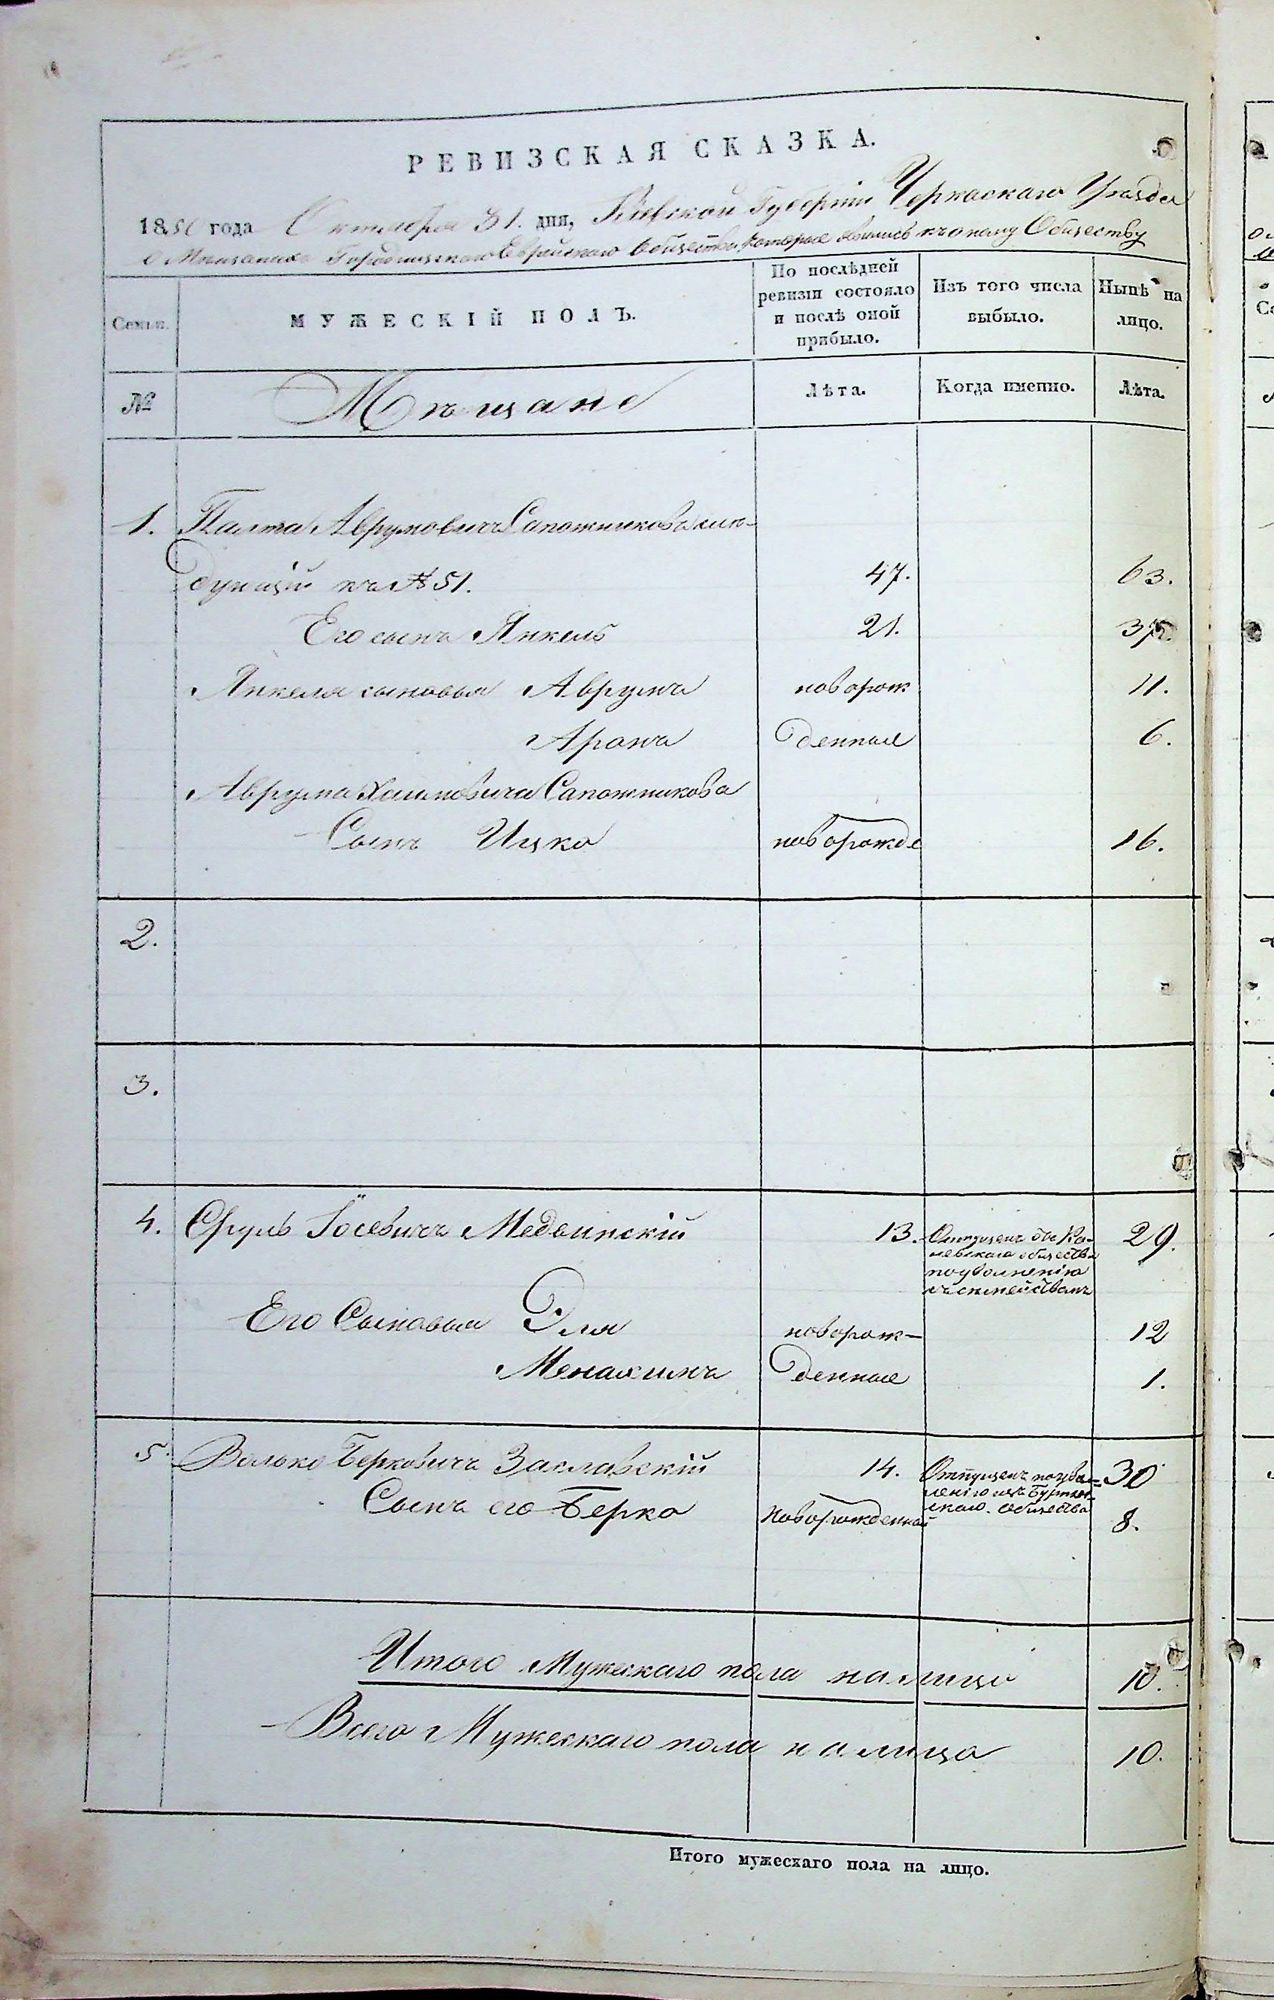 РЕВИЗСКАЯ СКАЗКА.
1850 года Октября 31. дня, Киевской Губерніи Черкаскаго Уѣзда
о Мѣщанахъ Городищскаго Еврейскаго Общества которые явились къ оному Обществу
Семьи.
МУЖЕСКІЙ ПОЛЪ.
По послѣдней ревизіи состояло и послѣ оной прибыло.
Изъ того числа выбыло.
Нынѣ на лицо.
№
Мѣщане
Лѣта.
Когда именно.
Лѣта.
1. Палта Аврумовичъ Сапожниковъ слѣ-
дующій къ № 51. 47. 63.
Его сынъ Янкель 21. 37.
Янкеля сыновья Аврумъ новорож 11.
Аронъ денные 6.
Аврума Хаимовича Сапожникова
Сынъ Ицко новорожде 16.
2.
3.
4. Сруль Іосевичъ Медвинскій 13. 29.
Отпущенъ отъ Ка-
невскаго общества
по уволненію
съ семействомъ
Его Сыновья Эля новорож- 12
Менахимъ денные 1.
5. Волько Берковичъ Заславскій 14. 30
Отпущенъ по уво-
ленію изъ
скаго Общества
Сынъ его Берко новорожденный 8.
Итого Мужескаго пола на лицо 10.
Всего Мужескаго пола на лицо 10.
Итого мужескаго пола на лицо.